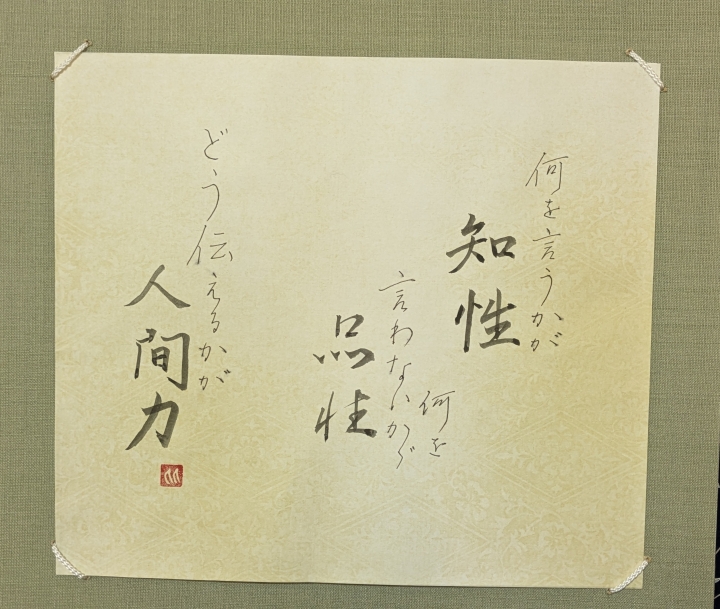 何を言うかが
知性
何を
言わないかが
品性
どう伝えるかが
人間力